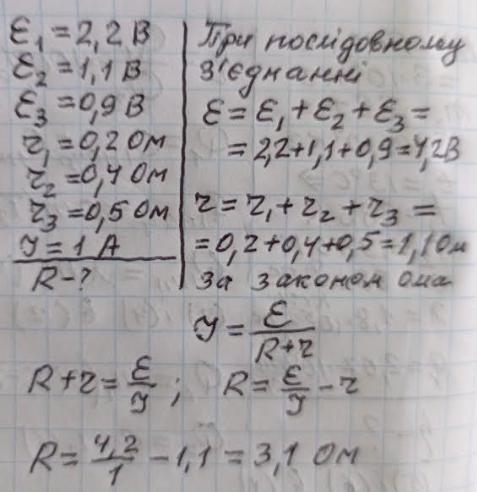 ℰ₁ = 2,2 В
ℰ₂ = 1,1 В
ℰ₃ = 0,9 В
r₁ = 0,2 Ом
r₂ = 0,4 Ом
r₃ = 0,5 Ом
I = 1 А
R - ?
При послідовному
з'єднанні
ℰ = ℰ₁ + ℰ₂ + ℰ₃ =
= 2,2 + 1,1 + 0,9 = 4,2 В
r = r₁ + r₂ + r₃ =
= 0,2 + 0,4 + 0,5 = 1,1 Ом
за законом ома
I = ℰ / (R + r)
R + r = ℰ / I ; R = ℰ / I - r
R = 4,2 / 1 - 1,1 = 3,1 Ом